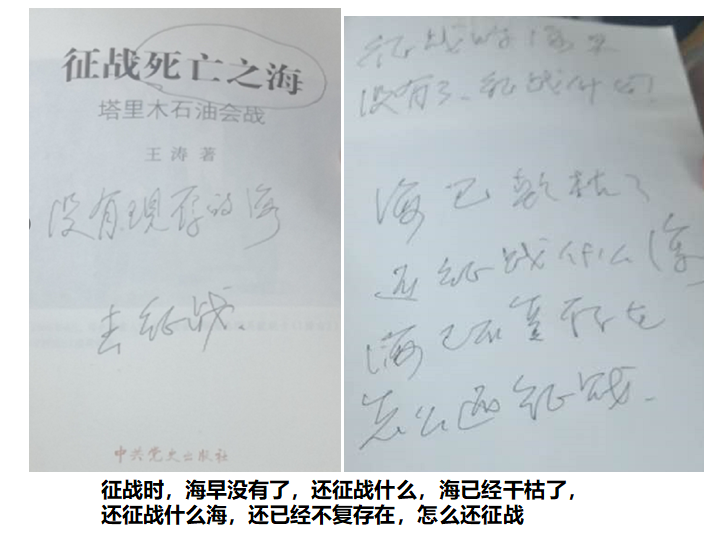 征战死亡之海
塔里木石油会战
王涛 著
没有现存的海
去征战.
中共党史出版社
征战时海早
没有了、征战什么
海已乾枯了
还征战什么海
海已不复存在
怎么还征战.
征战时，海早没有了，还征战什么，海已经干枯了，
还征战什么海，还已经不复存在，怎么还征战